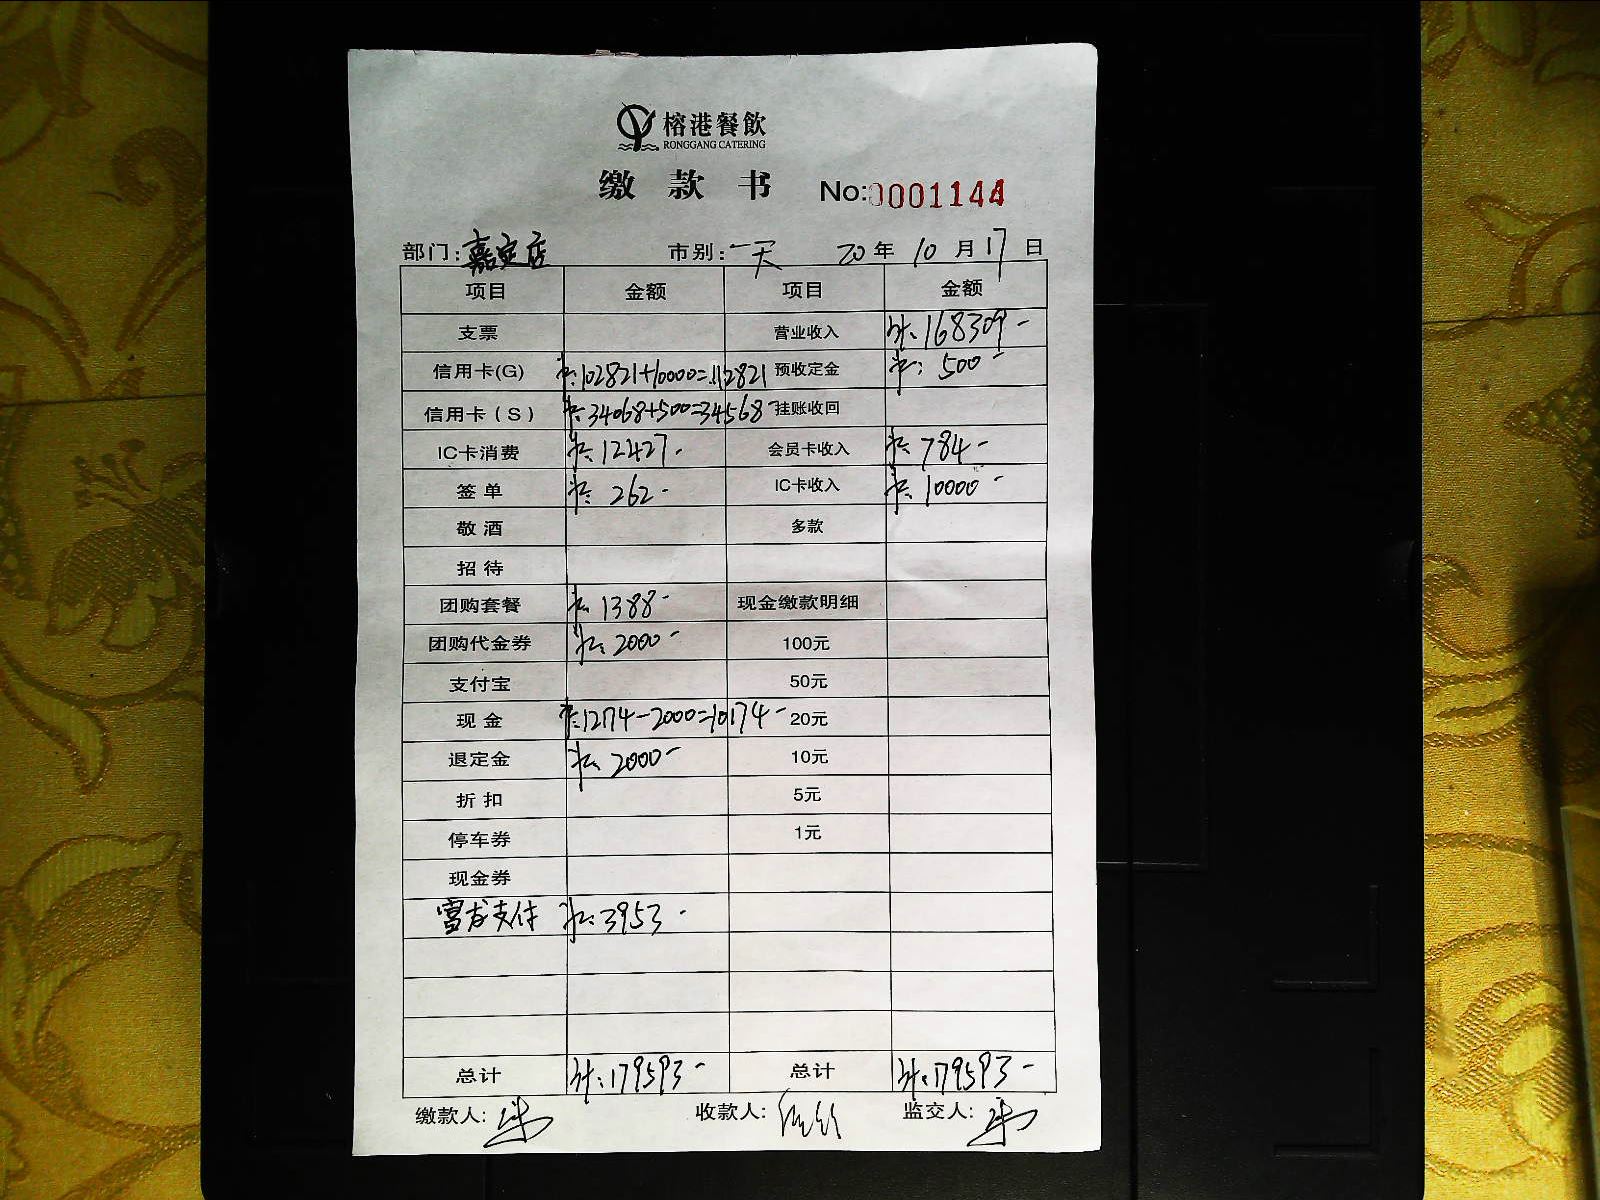 榕港餐飲
RONGGANG CATERING
缴款书 No:0001144
部门:嘉定店 市别:一天 20年10月17日
项目 金额 项目 金额
支票 营业收入 计:168309-
信用卡(G) 卡:102821+10000=112821 预收定金 卡:500-
信用卡(S) 卡:34068+500=34568- 挂账收回
IC卡消费 卡:12427- 会员卡收入 卡:784-
签单 卡:262- IC卡收入 卡:10000-
敬酒 多款
招待
团购套餐 卡:1388- 现金缴款明细
团购代金券 卡:2000- 100元
支付宝 50元
现金 卡:12174-2000=10174- 20元
退定金 卡:2000- 10元
折扣 5元
停车券 1元
现金券
雪龙支付 卡:3953-
总计 计:179593- 总计 计:179593-
缴款人: 收款人: 监交人: